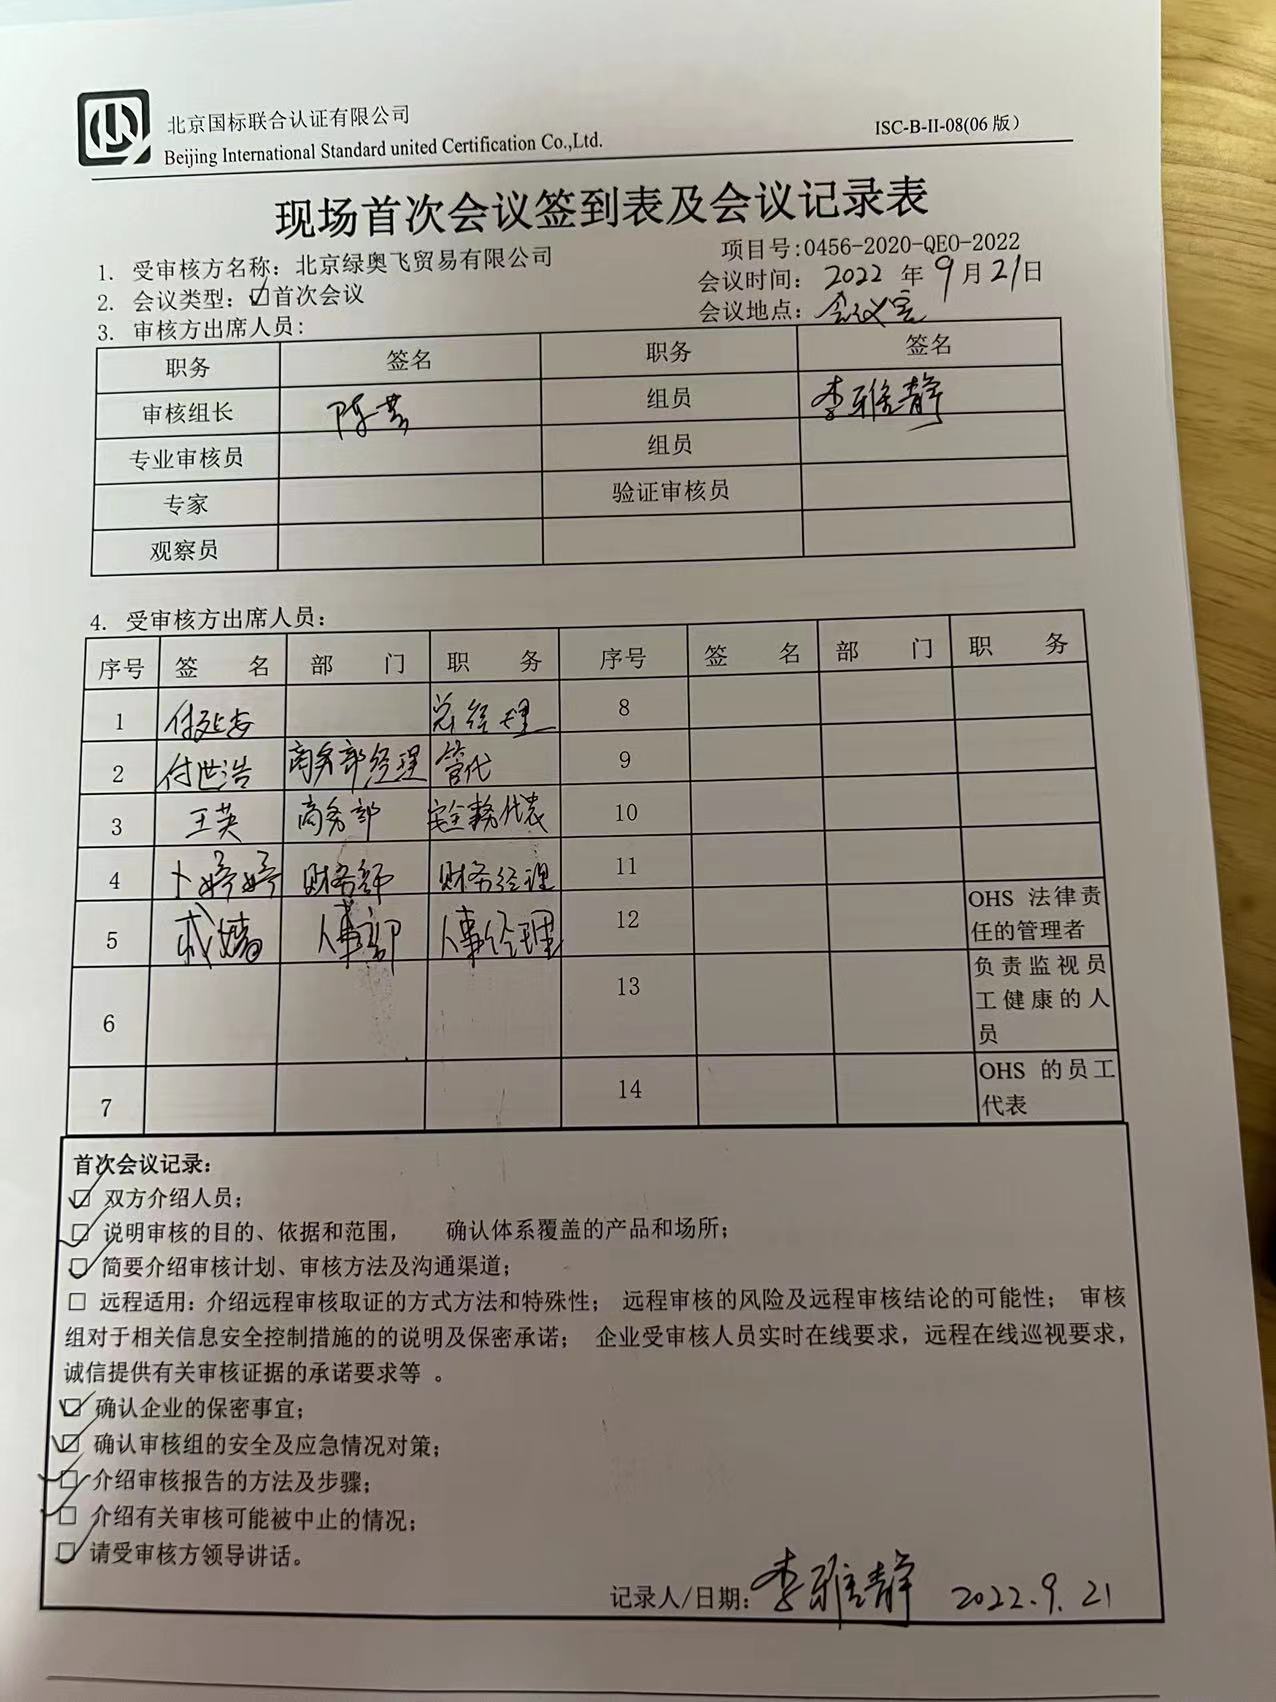 北京国标联合认证有限公司
Beijing International Standard united Certification Co.,Ltd.
ISC-B-II-08(06 版)
现场首次会议签到表及会议记录表
项目号:0456-2020-QEO-2022
1. 受审核方名称: 北京绿奥飞贸易有限公司
会议时间: 2022 年 9月21日
2. 会议类型: ☑首次会议
会议地点: 会议室
3. 审核方出席人员:
职务 签名 职务 签名
审核组长 陈芸 组员 李雅静
专业审核员 组员
专家 验证审核员
观察员
4. 受审核方出席人员:
序号 签 名 部 门 职 务 序号 签 名 部 门 职 务
1 总经理 8
2 付世浩 商务部经理 管代 9
3 王英 商务部 代表 10
4 卜婷婷 财务部 财务经理 11
5 人事部 人事经理 12 OHS 法律责
任的管理者
6 13 负责监视员
工健康的人
员
7 14 OHS 的员工
代表
首次会议记录:
☑ 双方介绍人员;
☑ 说明审核的目的、依据和范围, 确认体系覆盖的产品和场所;
☑ 简要介绍审核计划、审核方法及沟通渠道;
□ 远程适用: 介绍远程审核取证的方式方法和特殊性; 远程审核的风险及远程审核结论的可能性; 审核
组对于相关信息安全控制措施的的说明及保密承诺; 企业受审核人员实时在线要求, 远程在线巡视要求,
诚信提供有关审核证据的承诺要求等 。
☑ 确认企业的保密事宜;
☑ 确认审核组的安全及应急情况对策;
☑ 介绍审核报告的方法及步骤;
☑ 介绍有关审核可能被中止的情况;
☑ 请受审核方领导讲话。
记录人/日期: 李雅静 2022.9.21